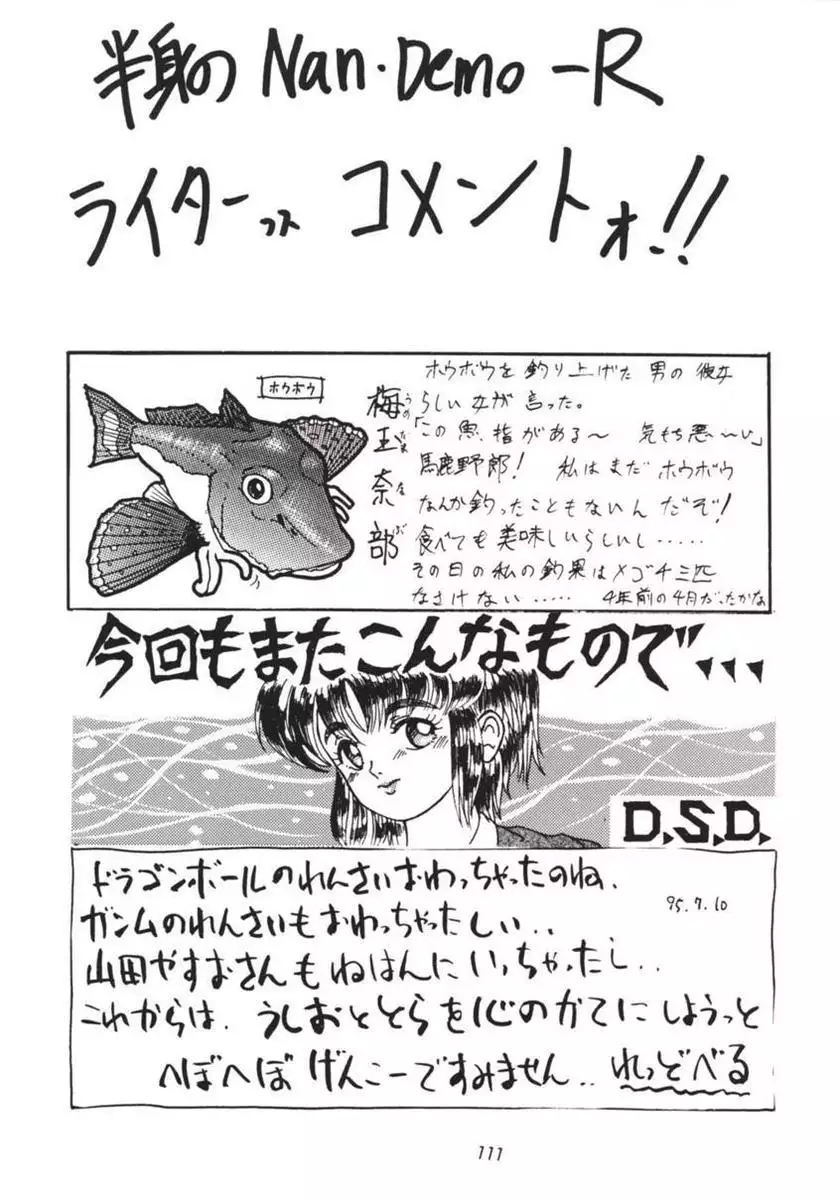 半身の Nan・Demo -R
ライターズ コメントォ!!
ホウボウ
梅玉奈部
うめ たま な べ
ホウボウを釣り上げた 男の 彼女
らしい女が 言った。
「この魚、指がある〜 気もち悪〜い」
馬鹿野郎! 私はまだ ホウボウ
なんか釣ったこともないんだぞ!
食べても美味しいらしいし……
その日の私の釣果はメゴチ三匹
なさけない…… 4年前の4月だったかな
今回もまたこんなもので、、、
D.S.D.
ドラゴンボールのれんさいおわっちゃったのね、
95.7.10
ガンムのれんさいもおわっちゃったしぃ..
山田やすおさんもねはんにいっちゃったし..
これからは、うしおととらを心のかてにしようっと
へぼへぼげんこーですみません.. れっどべる
111